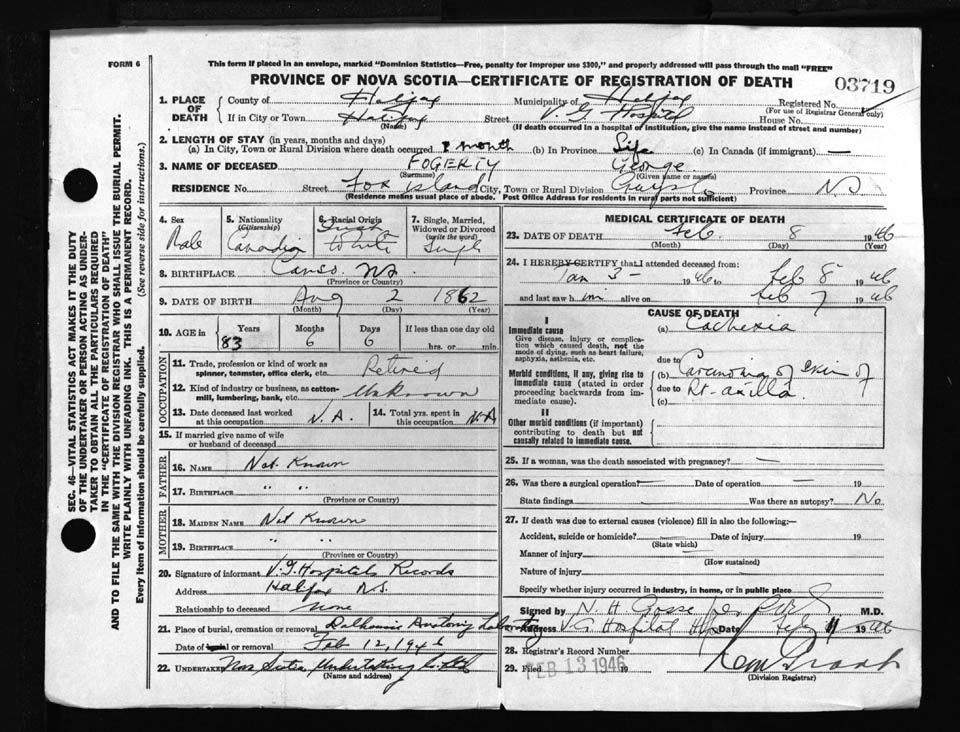 FORM 6
This form if placed in an envelope, marked "Dominion Statistics—Free, penalty for improper use $300," and properly addressed will pass through the mail "FREE"
PROVINCE OF NOVA SCOTIA—CERTIFICATE OF REGISTRATION OF DEATH
03719
1. PLACE OF DEATH County of Halifax Municipality of Halifax Registered No.
(For use of Registrar General only)
If in City or Town Halifax Street V. G. Hospital House No.
(Name) (If death occurred in a hospital or institution, give the name instead of street and number)
2. LENGTH OF STAY (in years, months and days)
(a) In City, Town or Rural Division where death occurred month (b) In Province Life (c) In Canada (if immigrant) —
3. NAME OF DECEASED FOGERTY George
(Surname) (Given name or names)
RESIDENCE No. Street Fox Island City, Town or Rural Division Guysb Province NS
(Residence means usual place of abode. Post Office Address for residents in rural parts not sufficient)
4. Sex Male
5. Nationality (Citizenship) Canadian
6. Racial Origin Irish White
7. Single, Married, Widowed or Divorced (write the word) Single
8. BIRTHPLACE Canso. NS.
(Province or Country)
9. DATE OF BIRTH Aug 2 1862
(Month) (Day) (Year)
10. AGE in Years 83 Months 6 Days 6 If less than one day old hrs. or min.
OCCUPATION
11. Trade, profession or kind of work as spinner, teamster, office clerk, etc. Retired
12. Kind of industry or business, as cotton-mill, lumbering, bank, etc. Unknown
13. Date deceased last worked at this occupation N.A.
14. Total yrs. spent in this occupation N.A
15. If married give name of wife or husband of deceased
FATHER
16. NAME Not Known
17. BIRTHPLACE " "
(Province or Country)
MOTHER
18. MAIDEN NAME Not Known
19. BIRTHPLACE " "
(Province or Country)
20. Signature of informant V.G. Hospitals Records
Address Halifax N.S.
Relationship to deceased None
21. Place of burial, cremation or removal Dalhousie Anatomy Laboratory
Date of burial or removal Feb 12, 1946
22. UNDERTAKER Nova Scotia Undertaking Co Ltd
(Name and address)
MEDICAL CERTIFICATE OF DEATH
23. DATE OF DEATH Feb. 8 1946
(Month) (Day) (Year)
24. I HEREBY CERTIFY that I attended deceased from:
Jan 3 - 1946 to Feb 8 1946
and last saw him alive on Feb 7 1946
CAUSE OF DEATH
I
Immediate cause
Give disease, injury or complication which caused death, not the mode of dying, such as heart failure, asphyxia, asthenia, etc.
(a) Cachexia
due to
Morbid conditions, if any, giving rise to immediate cause (stated in order proceeding backwards from immediate cause).
(b) Carcinoma of Skin of
due to Rt. axilla.
(c)
II
Other morbid conditions (if important) contributing to death but not causally related to immediate cause.
25. If a woman, was the death associated with pregnancy? —
26. Was there a surgical operation? — Date of operation — 19
State findings Was there an autopsy? No.
27. If death was due to external causes (violence) fill in also the following:—
Accident, suicide or homicide? Date of injury 19
(State which)
Manner of injury
(How sustained)
Nature of injury
Specify whether injury occurred in industry, in home, or in public place
Signed by N H Gosse per M.D.
Address V.G. Hospital Hfx Date Feb 11 1946
28. Registrar's Record Number
29. Filed FEB 13 1946 19
(Division Registrar)
SEC. 46—VITAL STATISTICS ACT MAKES IT THE DUTY
OF THE UNDERTAKER OR PERSON ACTING AS UNDER-
TAKER TO OBTAIN ALL THE PARTICULARS REQUIRED
IN THE "CERTIFICATE OF REGISTRATION OF DEATH"
AND TO FILE THE SAME WITH THE DIVISION REGISTRAR WHO SHALL ISSUE THE BURIAL PERMIT.
WRITE PLAINLY WITH UNFADING INK. THIS IS A PERMANENT RECORD.
Every item of information should be carefully supplied. (See reverse side for instructions.)